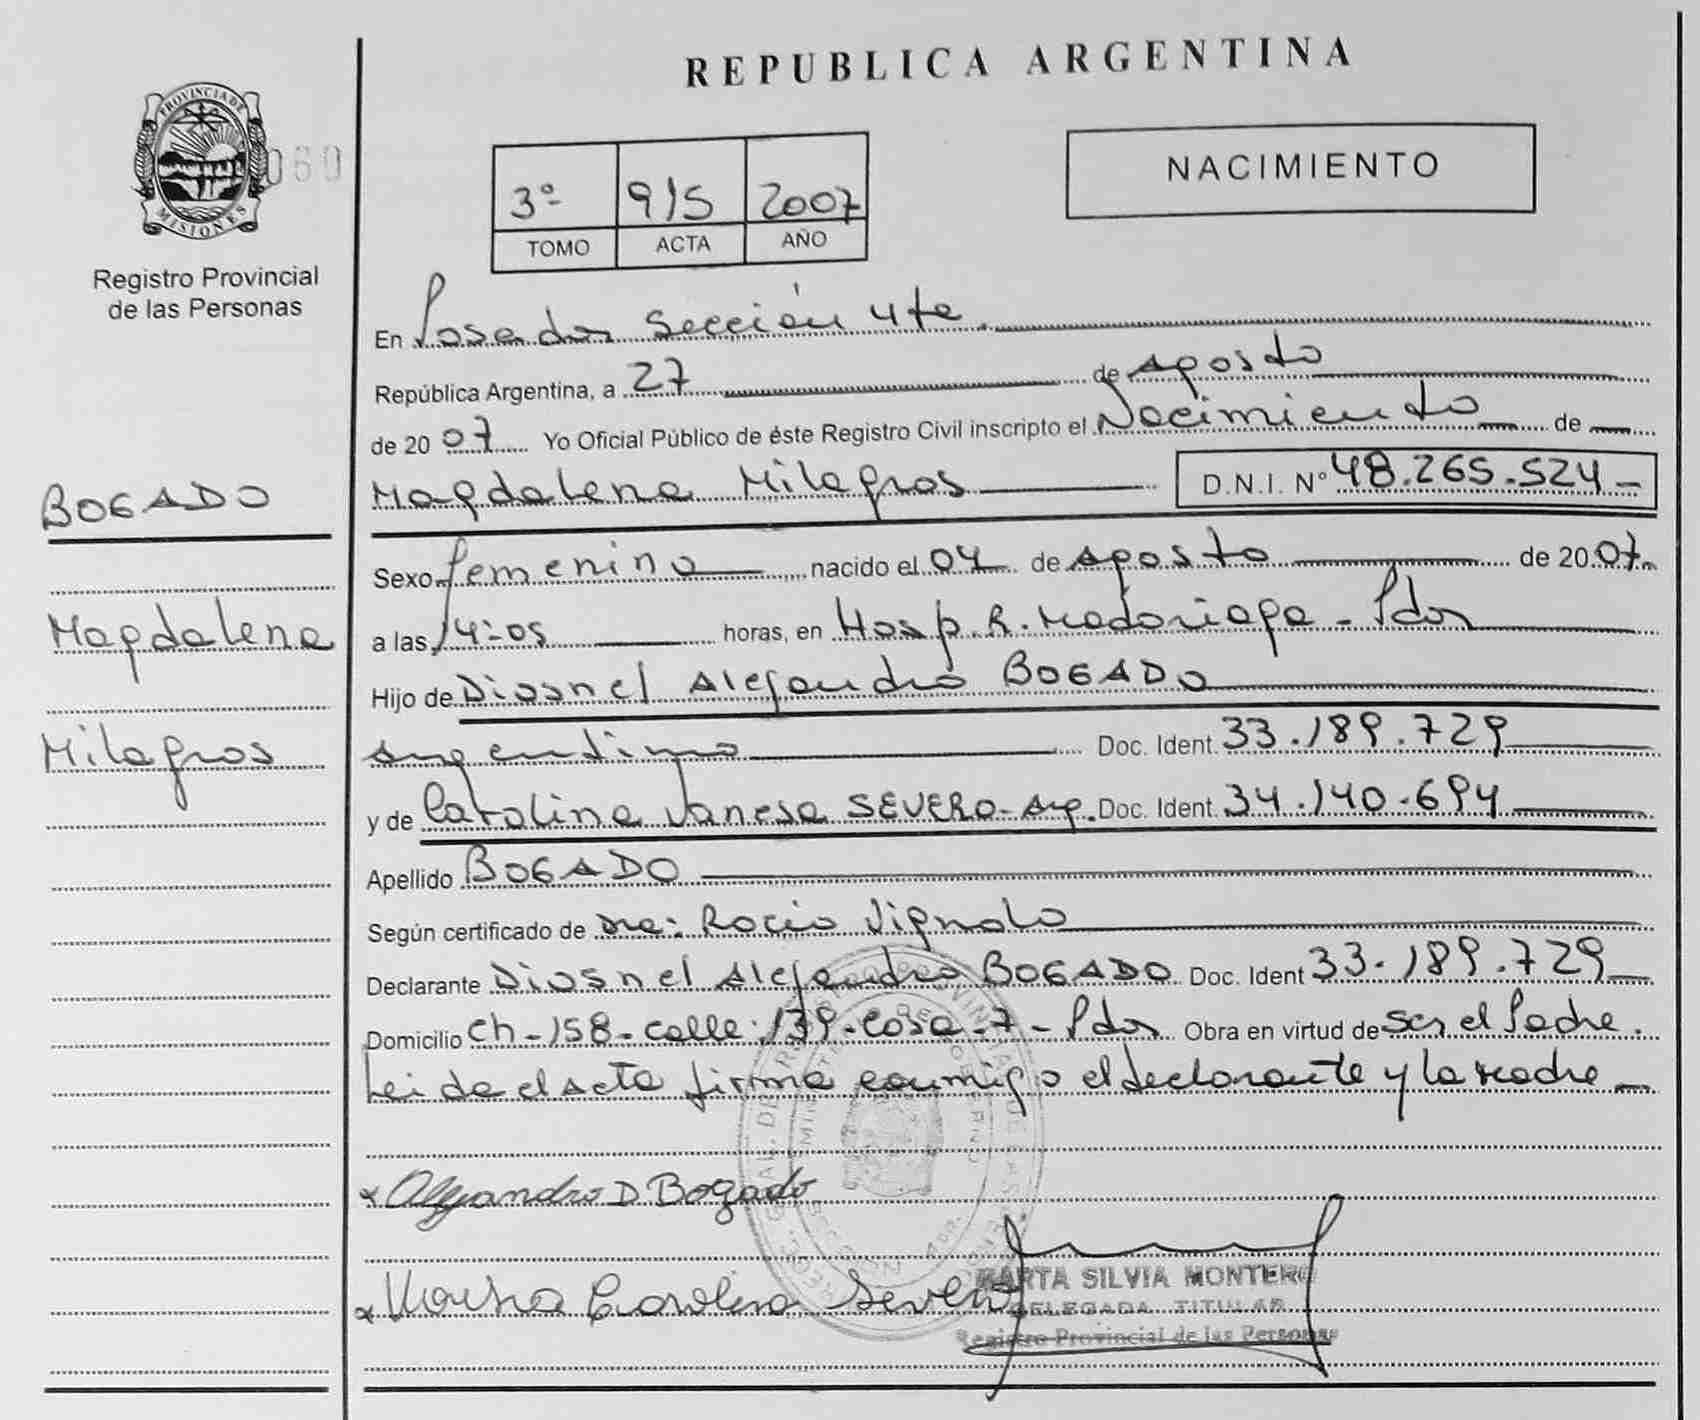 REPUBLICA ARGENTINA
PROVINCIA DE
MISIONES
060
Registro Provincial
de las Personas
3º 915 2007
TOMO ACTA AÑO
NACIMIENTO
En Posadas Sección 4ta
República Argentina, a 27 de Agosto
de 2007 Yo Oficial Público de éste Registro Civil inscripto el Nacimiento de
BOGADO
Magdalena Milagros D.N.I. Nº 48.265.524-
Sexo femenino nacido el 04 de Agosto de 2007
Magdalena
a las 14:05 horas, en Hosp. R. Madariaga - Pdas
Hijo de Diosnel Alejandro BOGADO
Milagros
Argentino Doc. Ident. 33.189.729
y de Carolina Vanesa SEVERO-Arg. Doc. Ident. 34.140.694
Apellido BOGADO
Según certificado de Dra: Rocío Vignolo
Declarante Diosnel Alejandro BOGADO Doc. Ident 33.189.729
Domicilio Ch-158-calle:139-casa-7-Pdas Obra en virtud de ser el Padre.
Leida el acta firma conmigo el declarante y la madre
x Alejandro D. Bogado
x Carolina Severo
MARTA SILVIA MONTERO
DELEGADA TITULAR
Registro Provincial de las Personas